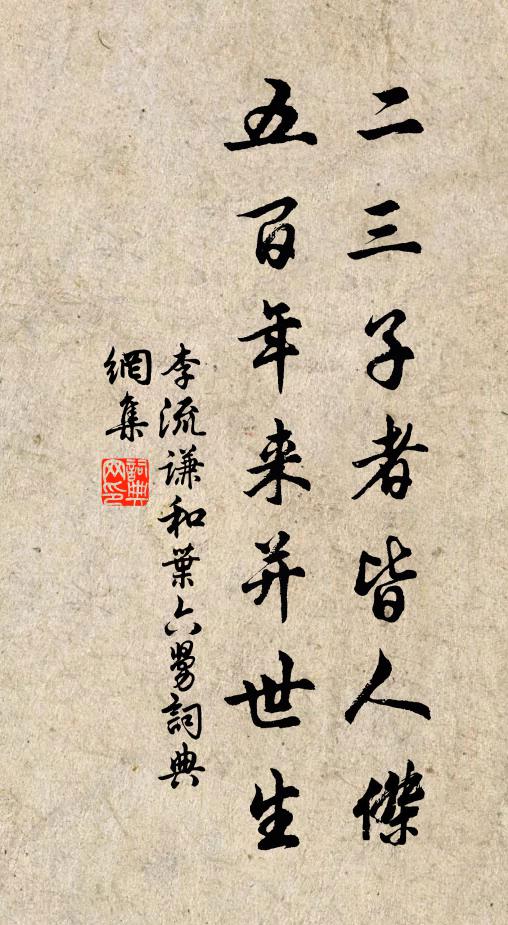 二三子者皆人傑
五百年来并世生
李流谦和葉六舅詞典
網集
詞典網印